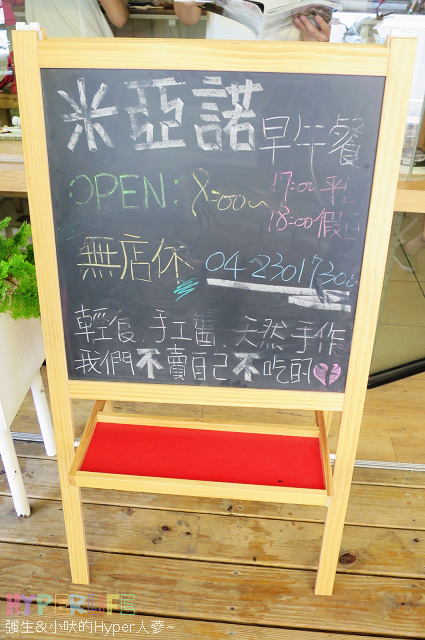 米亞諾 早午餐
OPEN: 8:00~ 17:00 平日
18:00 假日
無店休 04 23017300
輕食.手工醬.天然手作
我們不賣自己不吃的
HYPERLIFE
強生&小吠的Hyper人蔘~